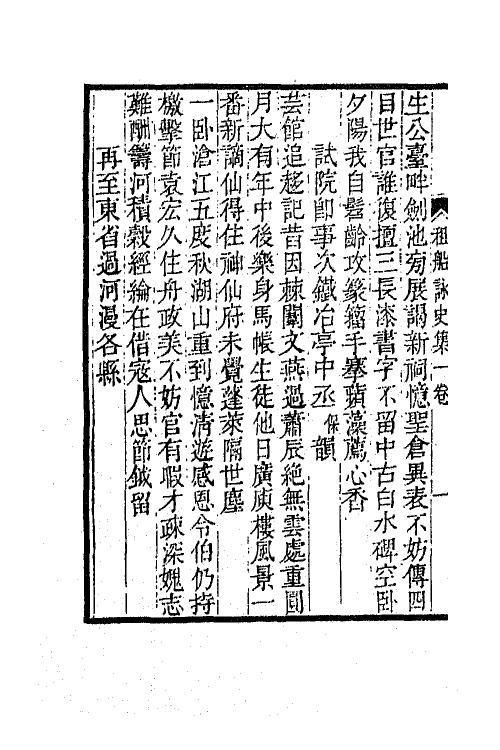 租船詠史集一卷
一
生公臺畔劍池旁展謁新祠憶聖倉異表不妨傳四
目世官誰復擅三長漆書字不留中古白水碑空臥
夕陽我自髫齡攻篆籀手搴蘋藻薦心香
試院卽事次鐵冶亭中丞保韻
芸館追趨記昔因棘闈文燕過蕭辰絶無雲處重圓
月大有年中後樂身馬帳生徒他日廣庾樓風景一
番新謫仙得住神仙府未覺蓬萊隔世塵
一卧滄江五度秋湖山重到憶淸遊感恩令伯仍持
檄擊節袁宏久住舟政美不妨官有暇才疎深媿志
難酬籌河積穀經綸在借寇人思節鉞留
再至東省過河漫各縣